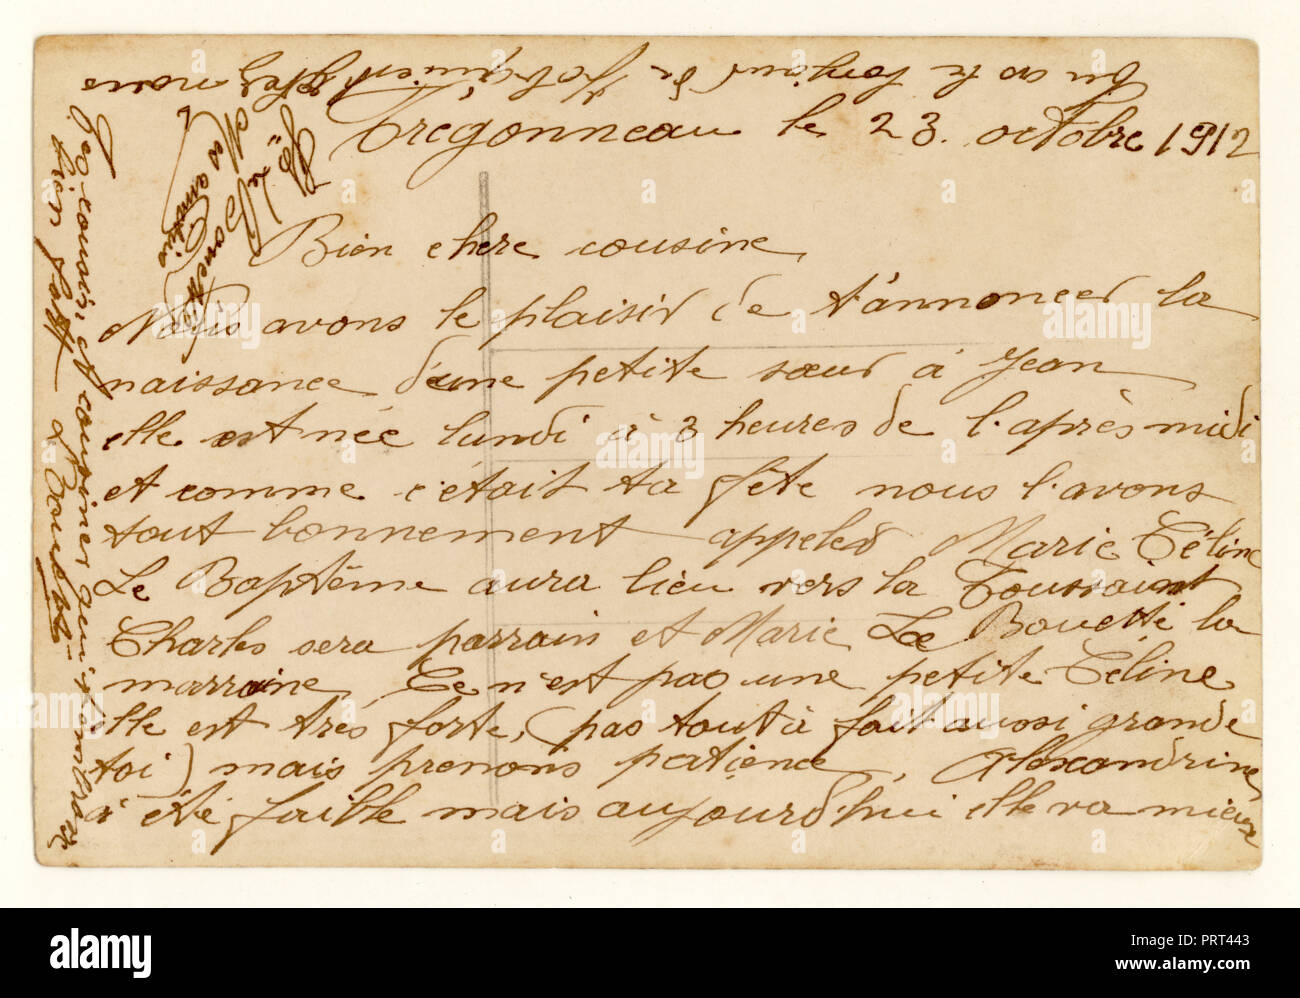 Trégonneau le 23 octobre 1912
Bien chere cousine
Nous avons le plaisir de t'annoncer la
naissance d'une petite sœur à Jean
elle est née lundi à 3 heures de l'après midi
et comme c'était ta fête nous l'avons
tout bonnement appeler Marie Céline
Le Baptême aura lieu vers la Toussaint
Charles sera parrain et Marie Le Bouetté la
marraine. Ce n'est pas une petite Céline
elle est très forte, (pas tout à fait aussi grande
toi) mais prenons patience, Alexandrine
à été faible mais aujourd'hui elle va mieux
Tes cousin et cousines qui t'embrasse
bien fort
On a le
nous
alamy
Image ID: PRT443
www.alamy.com